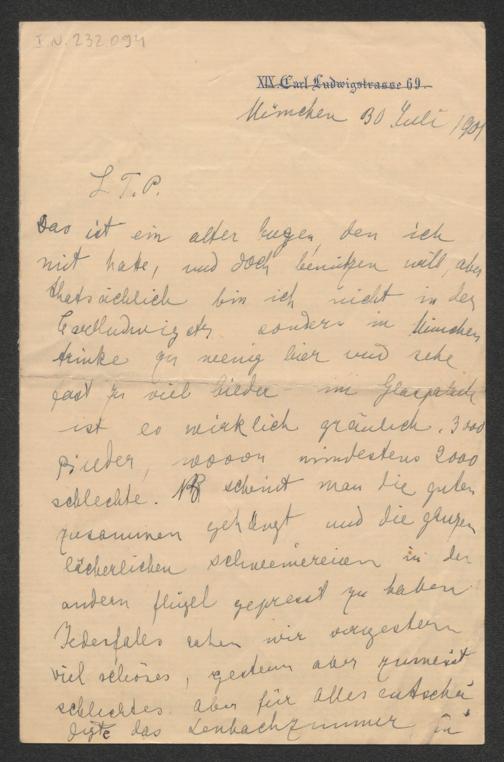 I.N. 232.094
XIX. Carl Ludwigstrasse 69.
München 30 Juli 1901
L. T. P.
Das ist ein alter bogen, den ich
mit habe, und doch benützen will, aber
thatsächlich bin ich nicht in der
Carlludwigstr sondern in München
trinke zu wenig bier und sehe
fast zu viel bieder im Glaspalast
ist es wirklich gräulich. 3000
Bieder, wovon mindestens 2000
schlechte. NB scheint man die guten
zusammen gehängt und die ganzen
lächerlichen schmierereien in den
andern flügel gepresst zu haben
Jedesfales sahen wir vorgestern
viel schönes, gestern aber zumeist
schlechtes aber für alles entschä
digte das Lenbachzimmer in